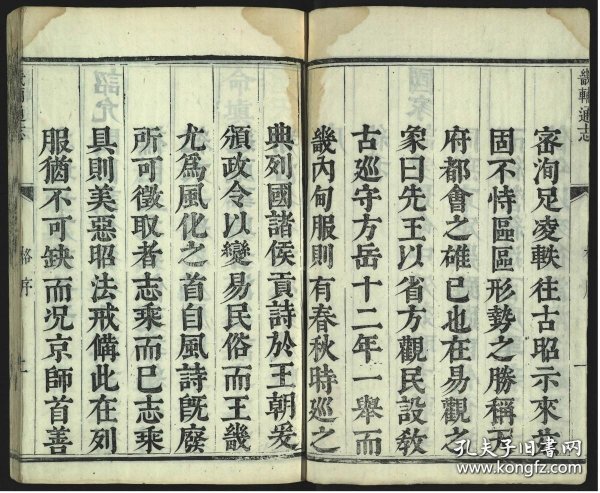 畿輔通志
密洵足凌軼往古昭示來
固不恃區區形勢之勝稱天
府都會之雄已也在易觀之
象曰先王以省方觀民設教
古巡守方岳十二年一舉而
畿內甸服則有春秋時巡之
典列國諸侯貢詩於王朝爰
頒政令以變易民俗而王畿
尤為風化之首自風詩既廢
所可徵取者志乘而已志乘
具則美惡昭法戒備此在列
服猶不可缺而况京師首善
畿輔通志
格序
孔夫子旧書网
www.kongfz.com